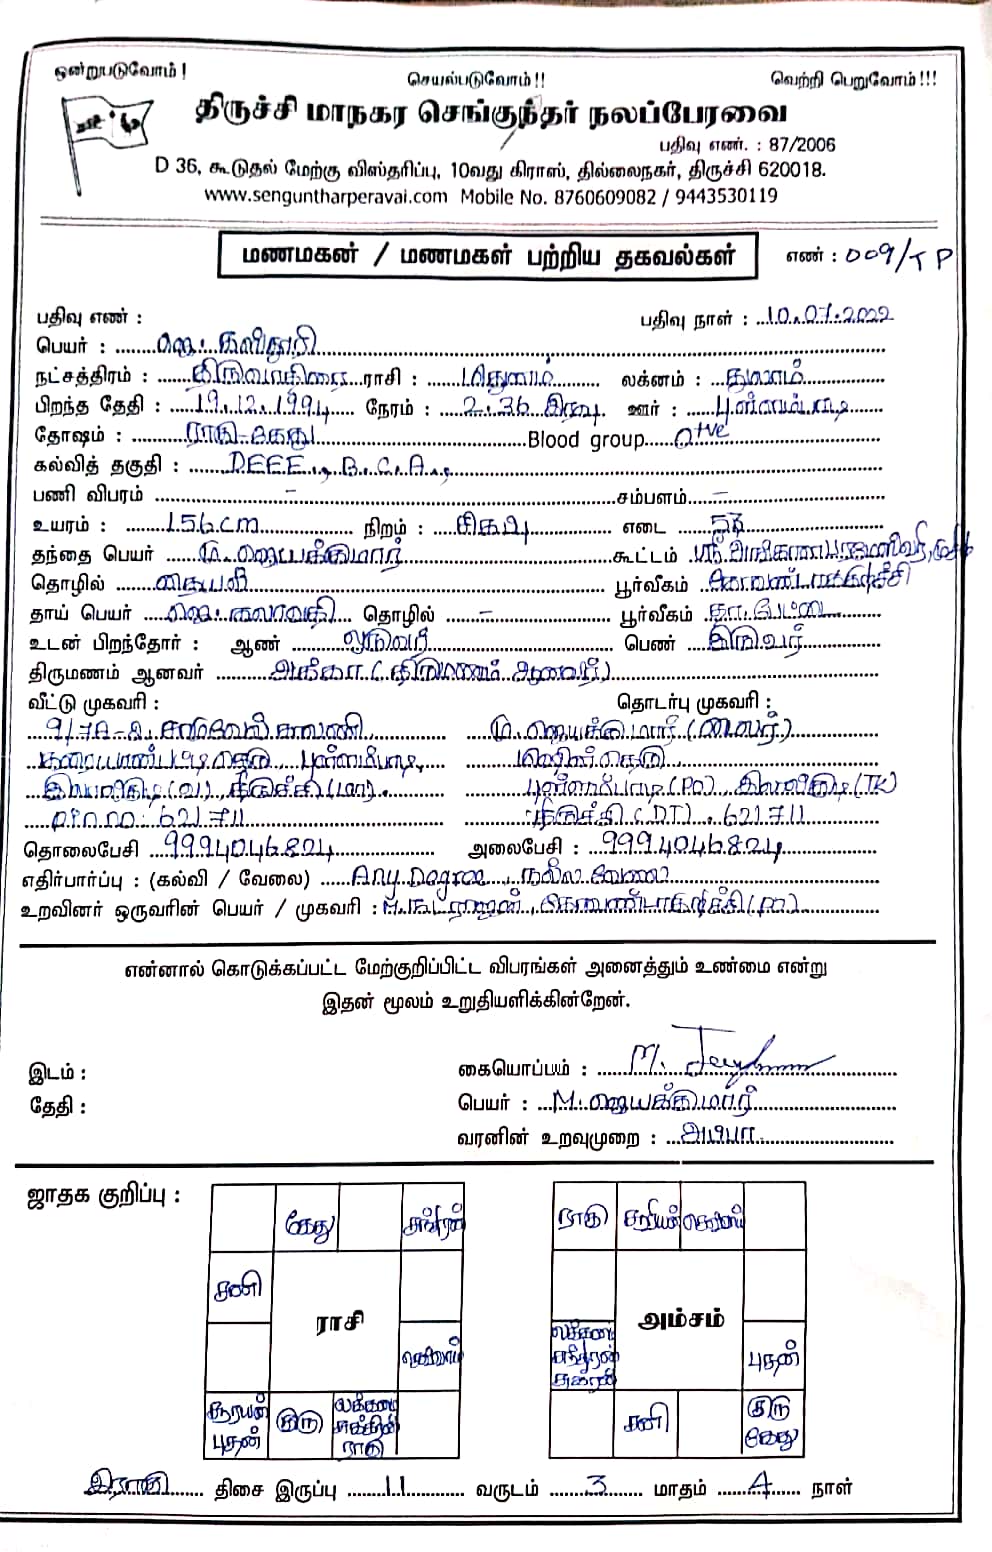 ஒன்றுபடுவோம் ! செயல்படுவோம் !! வெற்றி பெறுவோம் !!!
திருச்சி மாநகர செங்குந்தர் நலப்பேரவை
பதிவு எண். : 87/2006
D 36, கூடுதல் மேற்கு விஸ்தரிப்பு, 10வது கிராஸ், தில்லைநகர், திருச்சி 620018.
www.senguntharperavai.com Mobile No. 8760609082 / 9443530119
மணமகன் / மணமகள் பற்றிய தகவல்கள் எண் : 009/TP
பதிவு எண் : பதிவு நாள் : 10.07.2022
பெயர் : ஜெ.
நட்சத்திரம் : திருவாதிரை ராசி : மிதுனம் லக்னம் : துலாம்
பிறந்த தேதி : 19.12.1994 நேரம் : 2.36 இரவு ஊர் : புள்ளம்பாடி
தோஷம் : ராகு-கேது Blood group O+ve
கல்வித் தகுதி : DEEE., B.C.A.,
பணி விபரம் – சம்பளம் –
உயரம் : 156cm நிறம் : சிகப்பு எடை
தந்தை பெயர் மு. ஜெயக்குமார் கூட்டம் ஸ்ரீ
தொழில் பூர்வீகம்
தாய் பெயர் ஜெ. கலாவதி தொழில் – பூர்வீகம் தா.பேட்டை
உடன் பிறந்தோர் : ஆண் ஒருவர் பெண் இருவர்
திருமணம் ஆனவர் அக்கா (திருமணம் ஆனவர்)
வீட்டு முகவரி : தொடர்பு முகவரி :
காலனி மு. ஜெயக்குமார்
தெரு புள்ளம்பாடி, தெரு
இலால்குடி (வ), திருச்சி (மா). புள்ளம்பாடி (PO), இலால்குடி (TK)
621711 திருச்சி (DT). 621711
தொலைபேசி 9994046824 அலைபேசி : 9994046824
எதிர்பார்ப்பு : (கல்வி / வேலை) Any Degree, நல்ல வேலை
உறவினர் ஒருவரின் பெயர் / முகவரி : நடராஜன், (PO)
என்னால் கொடுக்கப்பட்ட மேற்குறிப்பிட்ட விபரங்கள் அனைத்தும் உண்மை என்று
இதன் மூலம் உறுதியளிக்கின்றேன்.
இடம் : கையொப்பம் : M.
தேதி : பெயர் : M. ஜெயக்குமார்
வரனின் உறவுமுறை : அப்பா
ஜாதக குறிப்பு :
கேது சந்திரன் ராகு சூரியன் செவ்வாய்
சனி
ராசி அம்சம்
செவ்வாய் லக்னம் சந்திரன் சுக்ரன் புதன்
சூரியன் புதன் குரு லக்னம் சுக்கிரன் ராகு சனி குரு கேது
இராகு திசை இருப்பு 11 வருடம் 3 மாதம் 4 நாள்